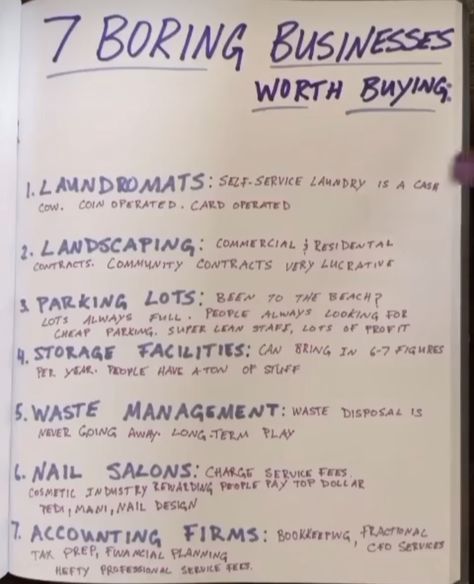 7 BORING BUSINESSES
WORTH BUYING:
1. LAUNDROMATS: SELF-SERVICE LAUNDRY IS A CASH
COW. COIN OPERATED. CARD OPERATED
2. LANDSCAPING: COMMERCIAL & RESIDENTAL
CONTRACTS. COMMUNITY CONTRACTS VERY LUCRATIVE
3. PARKING LOTS: BEEN TO THE BEACH?
LOTS ALWAYS FULL. PEOPLE ALWAYS LOOKING FOR
CHEAP PARKING. SUPER LEAN STAFF, LOTS OF PROFIT
4. STORAGE FACILITIES: CAN BRING IN 6-7 FIGURES
PER YEAR. PEOPLE HAVE A TON OF STUFF
5. WASTE MANAGEMENT: WASTE DISPOSAL IS
NEVER GOING AWAY. LONG-TERM PLAY
6. NAIL SALONS: CHARGE SERVICE FEES.
COSMETIC INDUSTRY REWARDING PEOPLE PAY TOP DOLLAR
PEDI, MANI, NAIL DESIGN
7. ACCOUNTING FIRMS: BOOKKEEPING, FRACTIONAL
CFO SERVICES
TAX PREP, FINANCIAL PLANNING
HEFTY PROFESSIONAL SERVICE FEES.